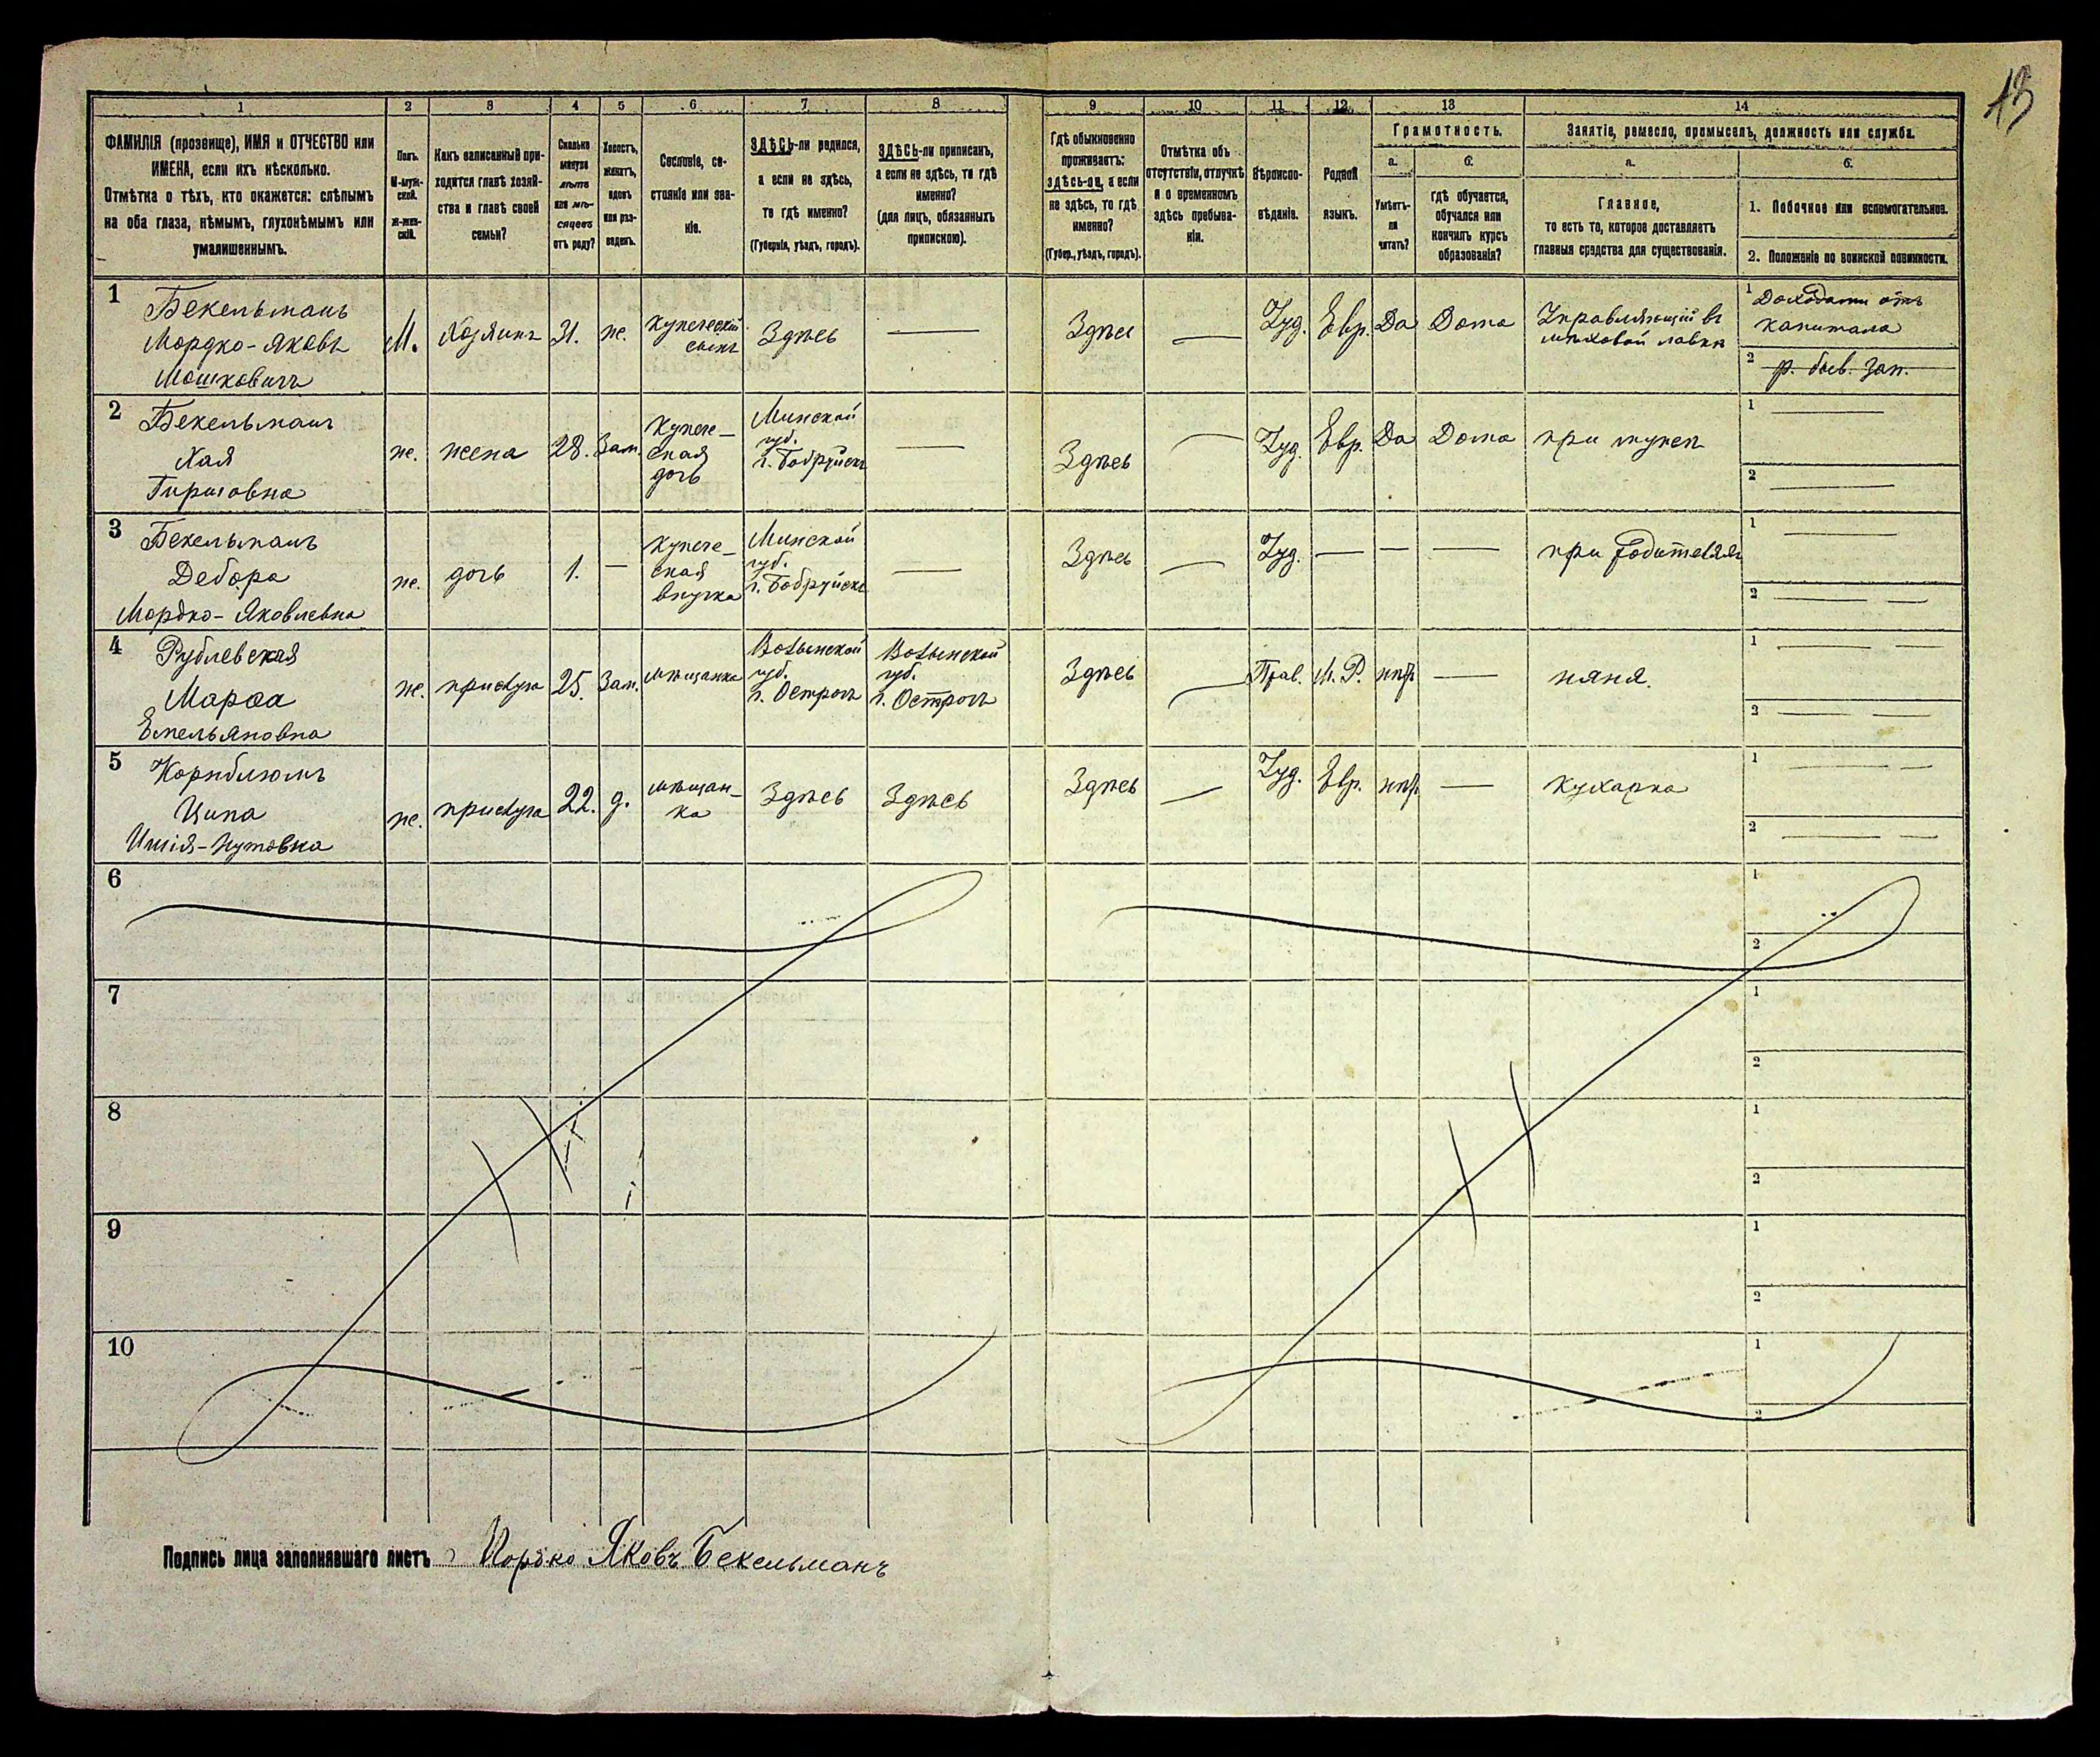 13
1 2 3 4 5 6 7 8 9 10 11 12 13 14
ФАМИЛІЯ (прозвище), ИМЯ и ОТЧЕСТВО или
ИМЕНА, если ихъ нѣсколько.
Отмѣтка о тѣхъ, кто окажется: слѣпымъ
на оба глаза, нѣмымъ, глухонѣмымъ или
умалишеннымъ.
Полъ.
М-муж-
ской.
Ж-жен-
скій.
Какъ записанный при-
ходится главѣ хозяй-
ства и главѣ своей
семьи?
Сколько
минуло
лѣтъ
или мѣ-
сяцевъ
отъ роду?
Холостъ,
женатъ,
вдовъ
или раз-
веденъ.
Сословіе, со-
стояніе или зва-
ніе.
ЗДѢСЬ-ли родился,
а если не здѣсь,
то гдѣ именно?
(Губернія, уѣздъ, городъ).
ЗДѢСЬ-ли приписанъ,
а если не здѣсь, то гдѣ
именно?
(для лицъ, обязанныхъ
припискою).
Гдѣ обыкновенно
проживаетъ:
здѣсь-ли, а если
не здѣсь, то гдѣ
именно?
(Губер., уѣздъ, городъ).
Отмѣтка объ
отсутствіи, отлучкѣ
и о временномъ
здѣсь пребыва-
ніи.
Вѣроиспо-
вѣданіе.
Родной
языкъ.
Грамотность.
а.
Умѣетъ-
ли
читать?
б.
гдѣ обучается,
обучался или
кончилъ курсъ
образованія?
Занятіе, ремесло, промыселъ, должность или служба.
а.
Главное,
то есть то, которое доставляетъ
главныя средства для существованія.
б.
1. Побочное или вспомогательное.
2. Положеніе по воинской повинности.
1
Бекельманъ
Мордко-Яковъ
Мошковичъ
М.
Хозяинъ
31.
же.
Купеческій
сынъ
Здѣсь
Здѣсь
Іуд.
Евр.
Да
Дома
Управляющій въ
мѣховой лавкѣ
1
Доходами отъ
капитала
2
р. бывъ. зап.
2
Бекельманъ
Хая
Гиршовна
же.
жена
28.
Зам.
Купече-
ская
дочь
Минской
губ.
г. Бобруйскъ
Здѣсь
Іуд.
Евр.
Да
Дома
при мужѣ
1
2
3
Бекельманъ
Дебора
Мордко-Яковлевна
же.
дочь
1.
Купече-
ская
внучка
Минской
губ.
г. Бобруйскъ
Здѣсь
Іуд.
при родителяхъ
1
2
4
Рублевская
Марѳа
Емельяновна
же.
прислуга
25.
Зам.
мѣщанка
Волынской
губ.
г. Острогъ
Волынской
губ.
г. Острогъ
Здѣсь
Прав.
М. Р.
нѣтъ
няня.
1
2
5
Корнблюмъ
Ципа
же.
прислуга
22.
д.
мѣщан-
ка
Здѣсь
Здѣсь
Здѣсь
Іуд.
Евр.
нѣтъ
кухарка
1
2
6
1
2
7
1
2
8
1
2
9
1
2
10
1
2
Подпись лица заполнявшаго листъ Мордко Яковъ Бекельманъ